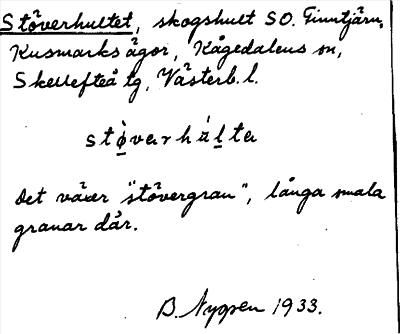 Stöverhultet, skogshult SO. Finntjärn,
Kusmarks ägor, Kågedalens sn,
Skellefteå tg, Västerb. l.
stø̀varhálta
Det växer "stövergran", långa smala
granar där.
B. Nygren 1933.